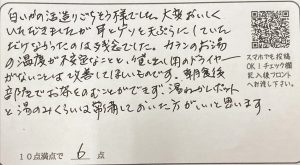 白いかの活造りごちそう様でした。大変おいしく
いただきましたが耳とゲソと天ぷらにしていた
だけなかったのは残念でした。カランのお湯
の温度が不安定なことと、貸し出し用のドライヤー
がないことは改善してほしいものです。朝食後
部屋でお茶をのむことができず、湯わかしポット
と湯のみくらいは常備しておいた方がいいと思います。
10点満点で 6 点
スマホでも投稿
OK!チェック欄
記入後フロント
へお渡し下さい。